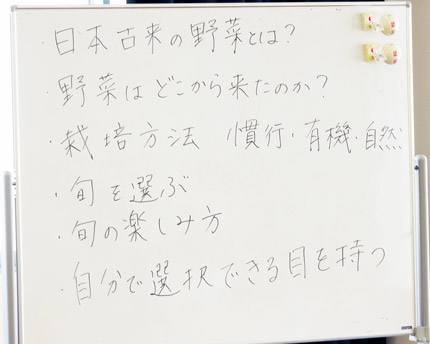 ・日本古来の野菜とは?
・野菜はどこから来たのか?
・栽培方法 慣行・有機・自然
・旬を選ぶ
・旬の楽しみ方
・自分で選択できる目を持つ